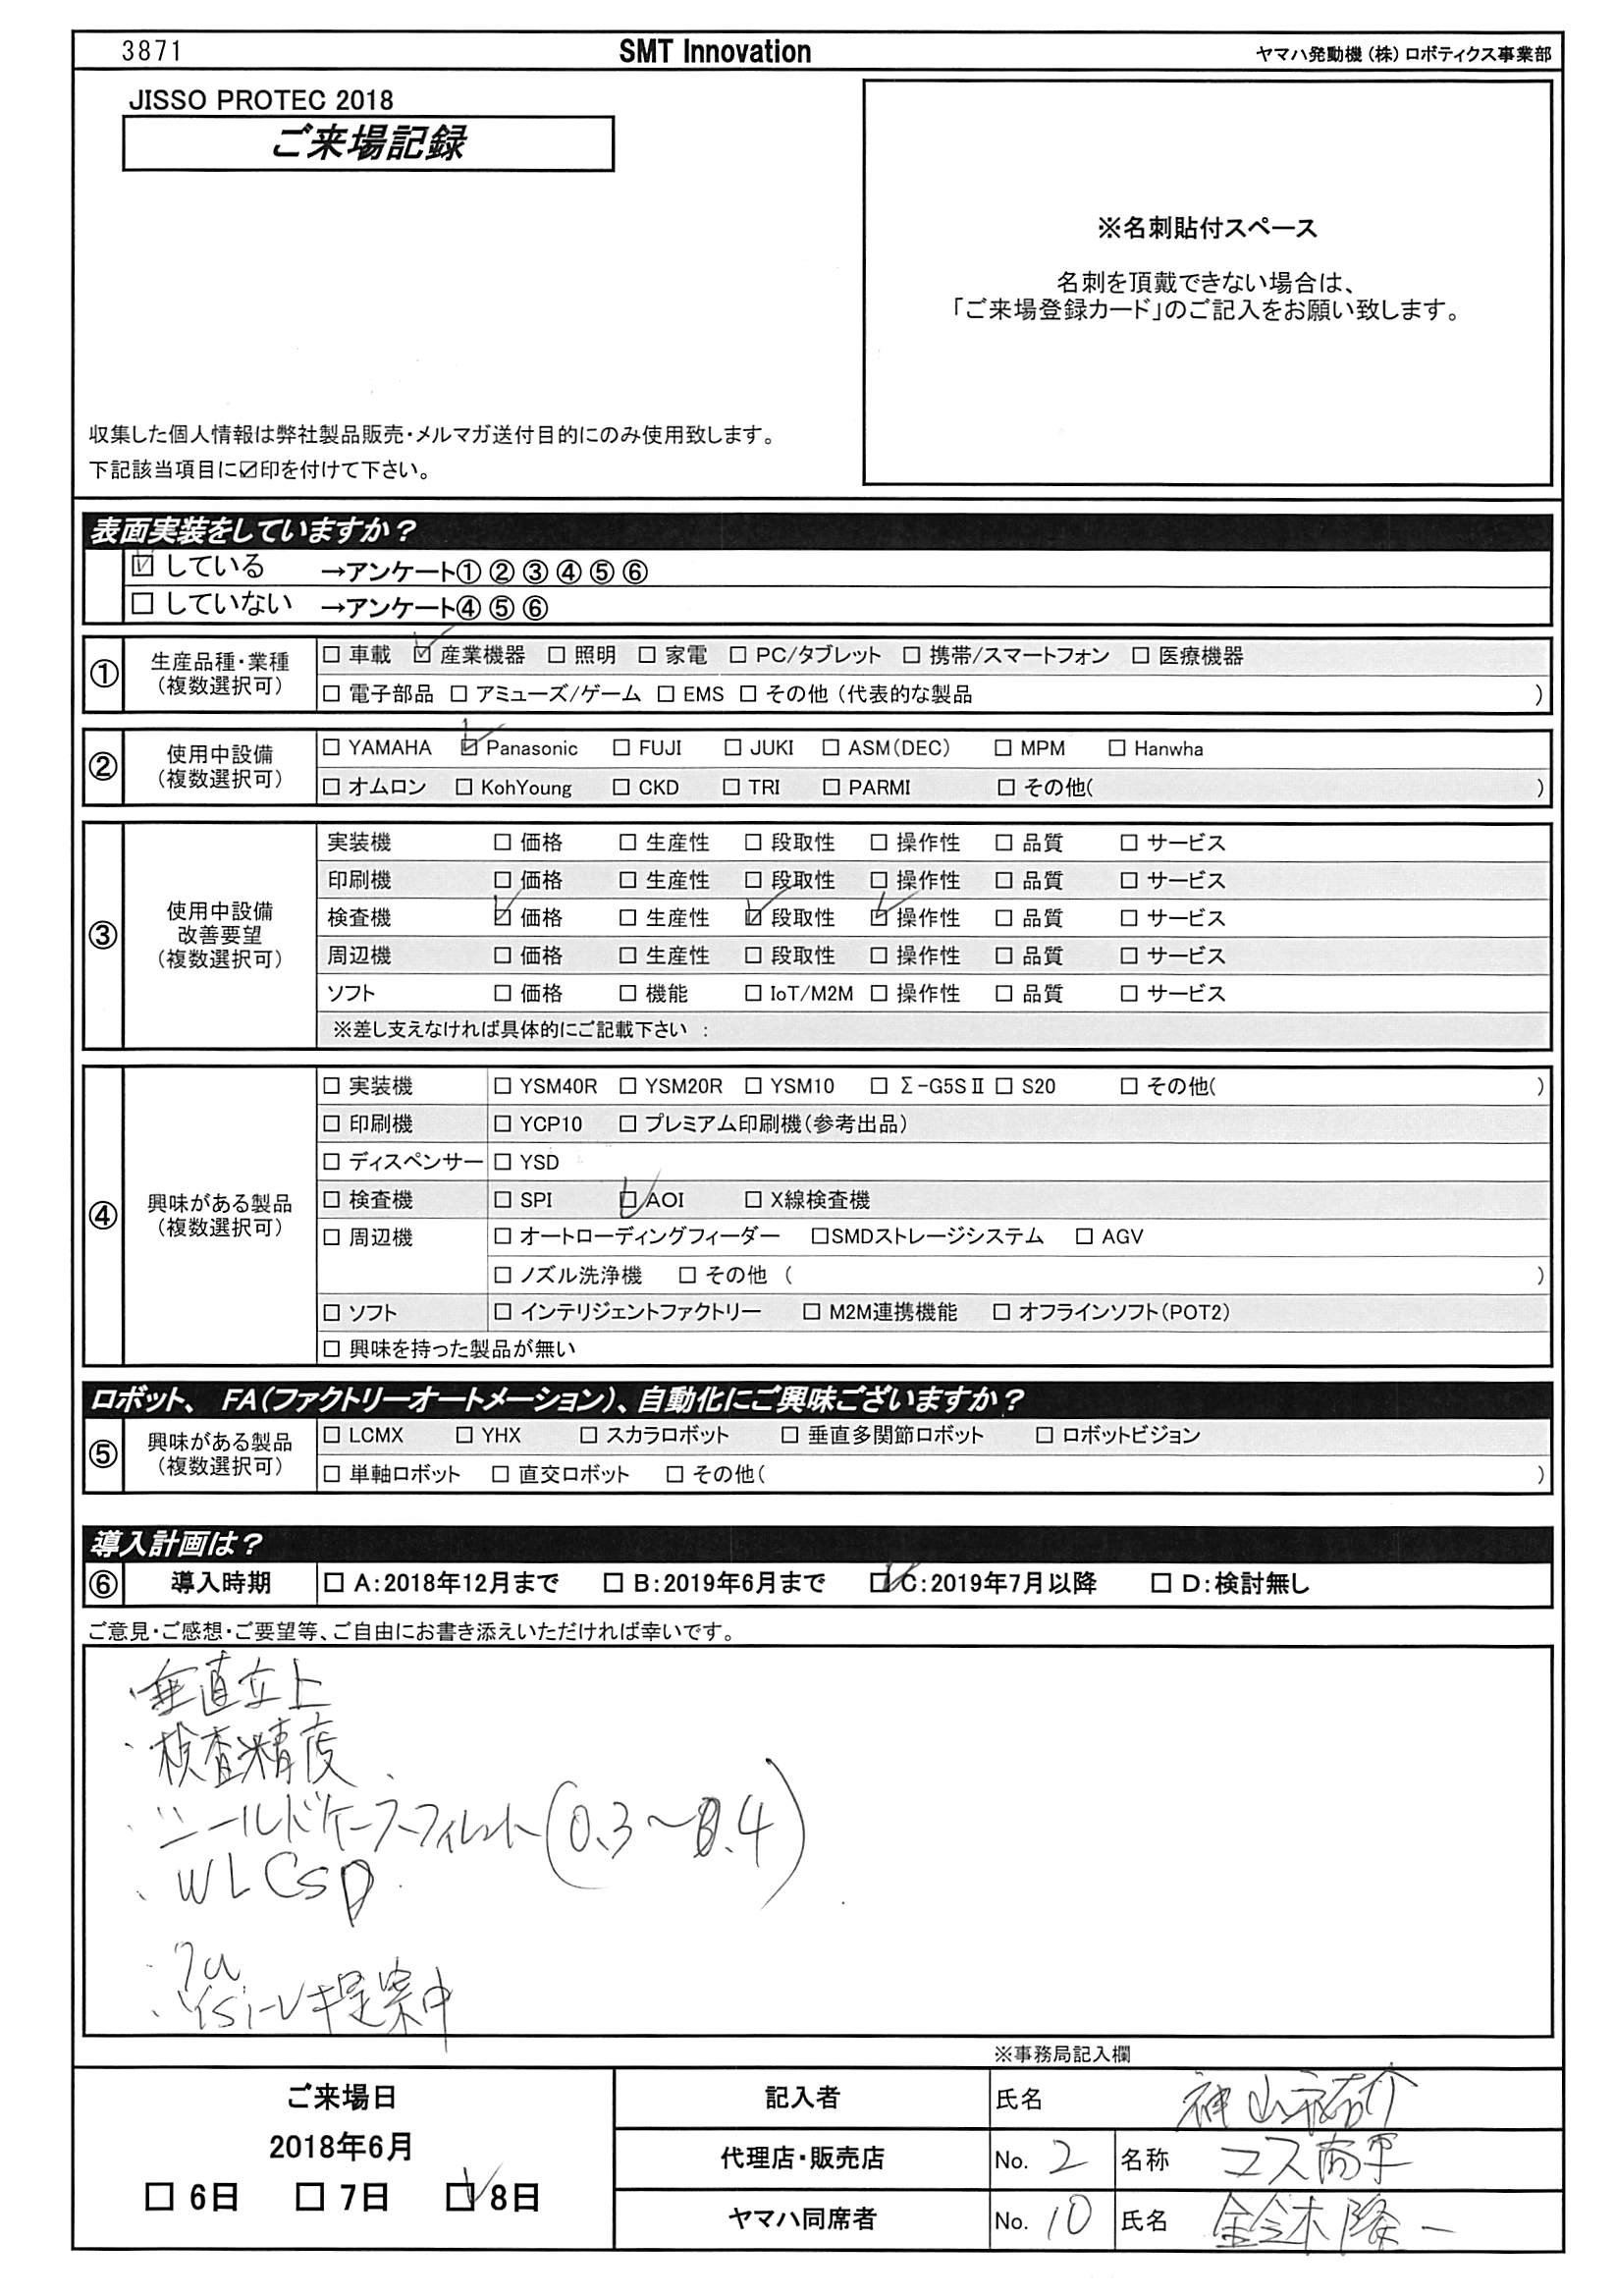 3871 SMT Innovation ヤマハ発動機(株)ロボティクス事業部
JISSO PROTEC 2018
ご来場記録
※名刺貼付スペース
名刺を頂戴できない場合は、
「ご来場登録カード」のご記入をお願い致します。
収集した個人情報は弊社製品販売・メルマガ送付目的にのみ使用致します。
下記該当項目に☑印を付けて下さい。
表面実装をしていますか?
☑ している →アンケート①②③④⑤⑥
□ していない →アンケート④⑤⑥
① 生産品種・業種 (複数選択可)
□ 車載 ☑ 産業機器 □ 照明 □ 家電 □ PC/タブレット □ 携帯/スマートフォン □ 医療機器
□ 電子部品 □ アミューズ/ゲーム □ EMS □ その他 (代表的な製品 )
② 使用中設備 (複数選択可)
□ YAMAHA ☑ Panasonic □ FUJI □ JUKI □ ASM(DEC) □ MPM □ Hanwha
□ オムロン □ KohYoung □ CKD □ TRI □ PARMI □ その他( )
③ 使用中設備 改善要望 (複数選択可)
実装機 □ 価格 □ 生産性 □ 段取性 □ 操作性 □ 品質 □ サービス
印刷機 □ 価格 □ 生産性 □ 段取性 □ 操作性 □ 品質 □ サービス
検査機 ☑ 価格 □ 生産性 ☑ 段取性 ☑ 操作性 □ 品質 □ サービス
周辺機 □ 価格 □ 生産性 □ 段取性 □ 操作性 □ 品質 □ サービス
ソフト □ 価格 □ 機能 □ IoT/M2M □ 操作性 □ 品質 □ サービス
※差し支えなければ具体的にご記載下さい :
④ 興味がある製品 (複数選択可)
□ 実装機 □ YSM40R □ YSM20R □ YSM10 □ Σ-G5SⅡ □ S20 □ その他( )
□ 印刷機 □ YCP10 □ プレミアム印刷機(参考出品)
□ ディスペンサー □ YSD
□ 検査機 □ SPI ☑ AOI □ X線検査機
□ 周辺機 □ オートローディングフィーダー □SMDストレージシステム □ AGV
□ ノズル洗浄機 □ その他 ( )
□ ソフト □ インテリジェントファクトリー □ M2M連携機能 □ オフラインソフト(POT2)
□ 興味を持った製品が無い
ロボット、FA(ファクトリーオートメーション)、自動化にご興味ございますか?
⑤ 興味がある製品 (複数選択可)
□ LCMX □ YHX □ スカラロボット □ 垂直多関節ロボット □ ロボットビジョン
□ 単軸ロボット □ 直交ロボット □ その他( )
導入計画は?
⑥ 導入時期 □ A:2018年12月まで □ B:2019年6月まで ☑ C:2019年7月以降 □ D:検討無し
ご意見・ご感想・ご要望等、ご自由にお書き添えいただければ幸いです。
・垂直立上
・検査精度
・シールドケースフィレット(0.3~0.4)
・WLCSP
・7u
・Ysi-V提案中
※事務局記入欄
ご来場日
2018年6月
□ 6日 □ 7日 ☑ 8日
記入者 氏名 神山祐介
代理店・販売店 No. 2 名称 コス商事
ヤマハ同席者 No. 10 氏名 鈴木隆一